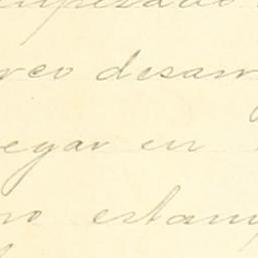 reo desarr
egar en
no estamp